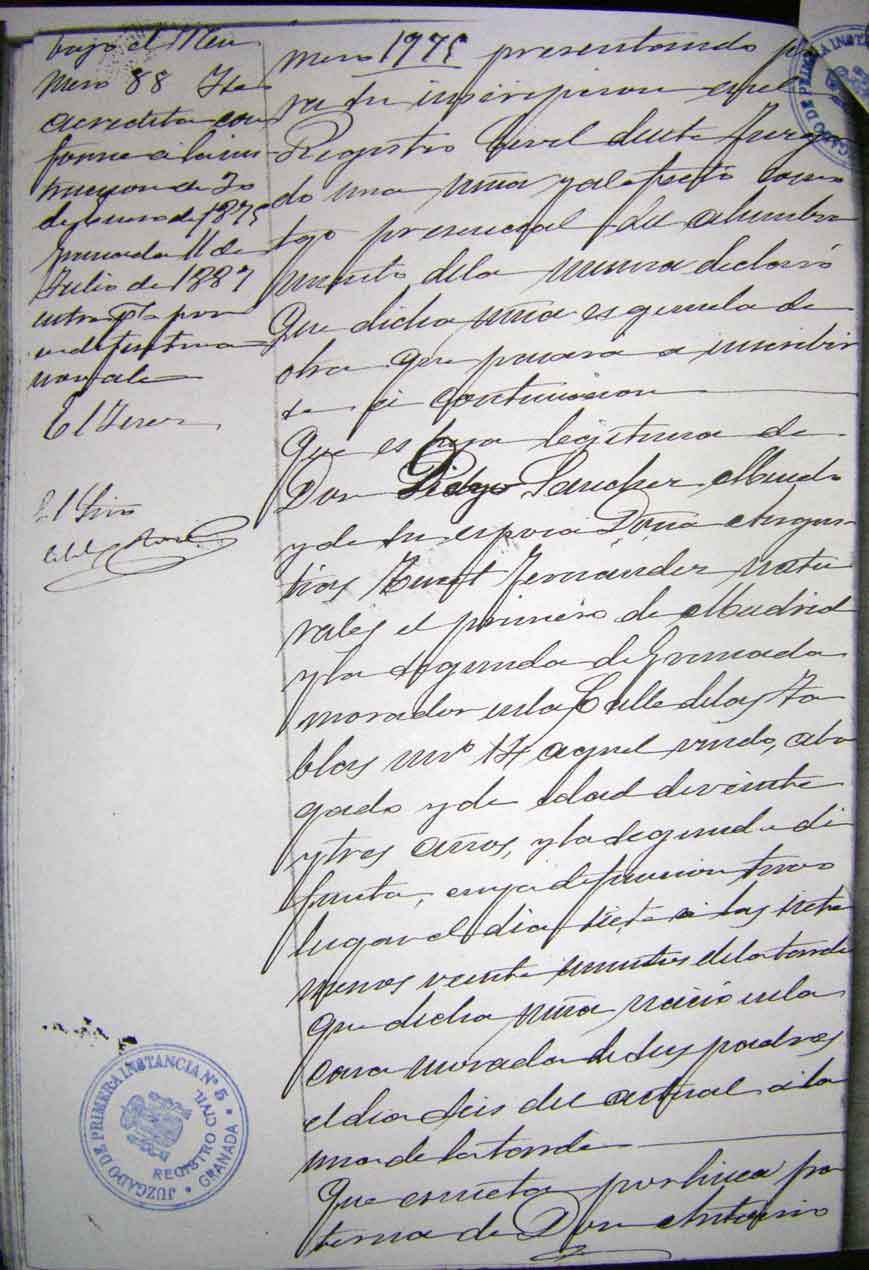 bajo el Nu
mero 88 Y se
acredita con
forme a la ins
truccion de 20
de Enero de 1875
Granada 11 de
Julio de 1887
El Juez
El Srio
mero 1975 presentando pa
ra su inscripcion en el
Registro Civil de este Juzga
do una niña y al efecto como
tgo presencial del alumbra
miento de la misma declaró
Que dicha niña es gemela de
otra que pasara a inscribir
se a continuacion
Que es hija legitima de
Don Diego Sanchez
y de su esposa Doña Angus
tias Fernández natu
rales el primero de Madrid
y la segunda de Granada
morador en la Calle de las Ta
blas nº 14 aquel viudo, abo
gado y de edad de veinte
y tres años, y la segunda di
funta, cuya defuncion tuvo
lugar el dia siete a las siete
menos veinte minutos de la tarde
Que dicha niña nació en la
casa morada de sus padres
el dia seis del actual a la
una de la tarde
Que es nieta por linea pa
terna de Don Antonio
JUZGADO DE PRIMERA INSTANCIA Nº 5
REGISTRO CIVIL
GRANADA
JUZGADO DE PRIMERA INSTA